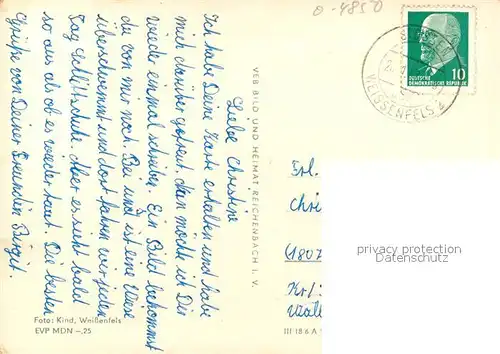 0-4850
DEUTSCHE
DEMOKRATISCHE REPUBLIK
10
WEISSENFELS 4
Liebe Christine
Ich habe Deine Karte erhalten und habe
mich darüber gefreut. Nun möchte ich Dir
wieder einmal schreiben. Ein Bild bekommst
du von mir noch. Bei uns ist eine Wiese
überschwemmt und dort fahren wir jeden
Tag Schlittschuh. Aber es sieht bald
so aus als ob es wieder taut. Die besten
Grüße von Deiner Freundin Birgit.
VEB BILD UND HEIMAT REICHENBACH I. V.
Frl.
Chri
(1807
Kr/
privacy protection
Datenschutz
Foto: Kind, Weißenfels
EVP MDN –,25
III 18 6 A